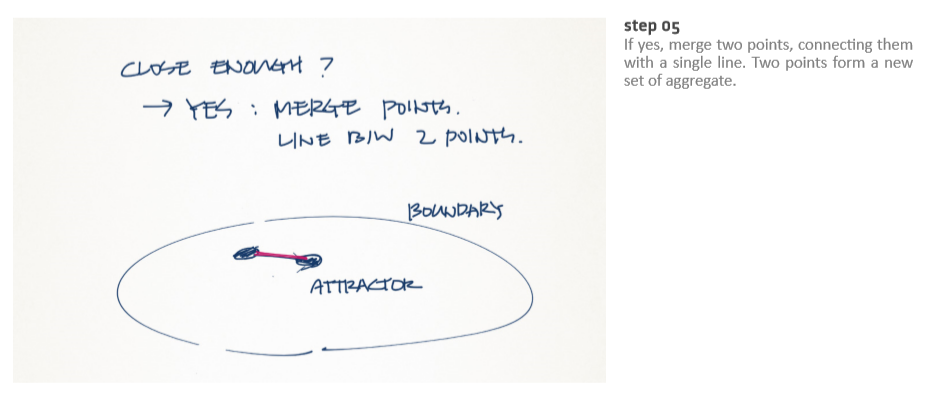 CLOSE ENOUGH ?
→ YES : MERGE POINTS.
LINE B/W 2 POINTS.
BOUNDARY
ATTRACTOR
step 05
If yes, merge two points, connecting them
with a single line. Two points form a new
set of aggregate.